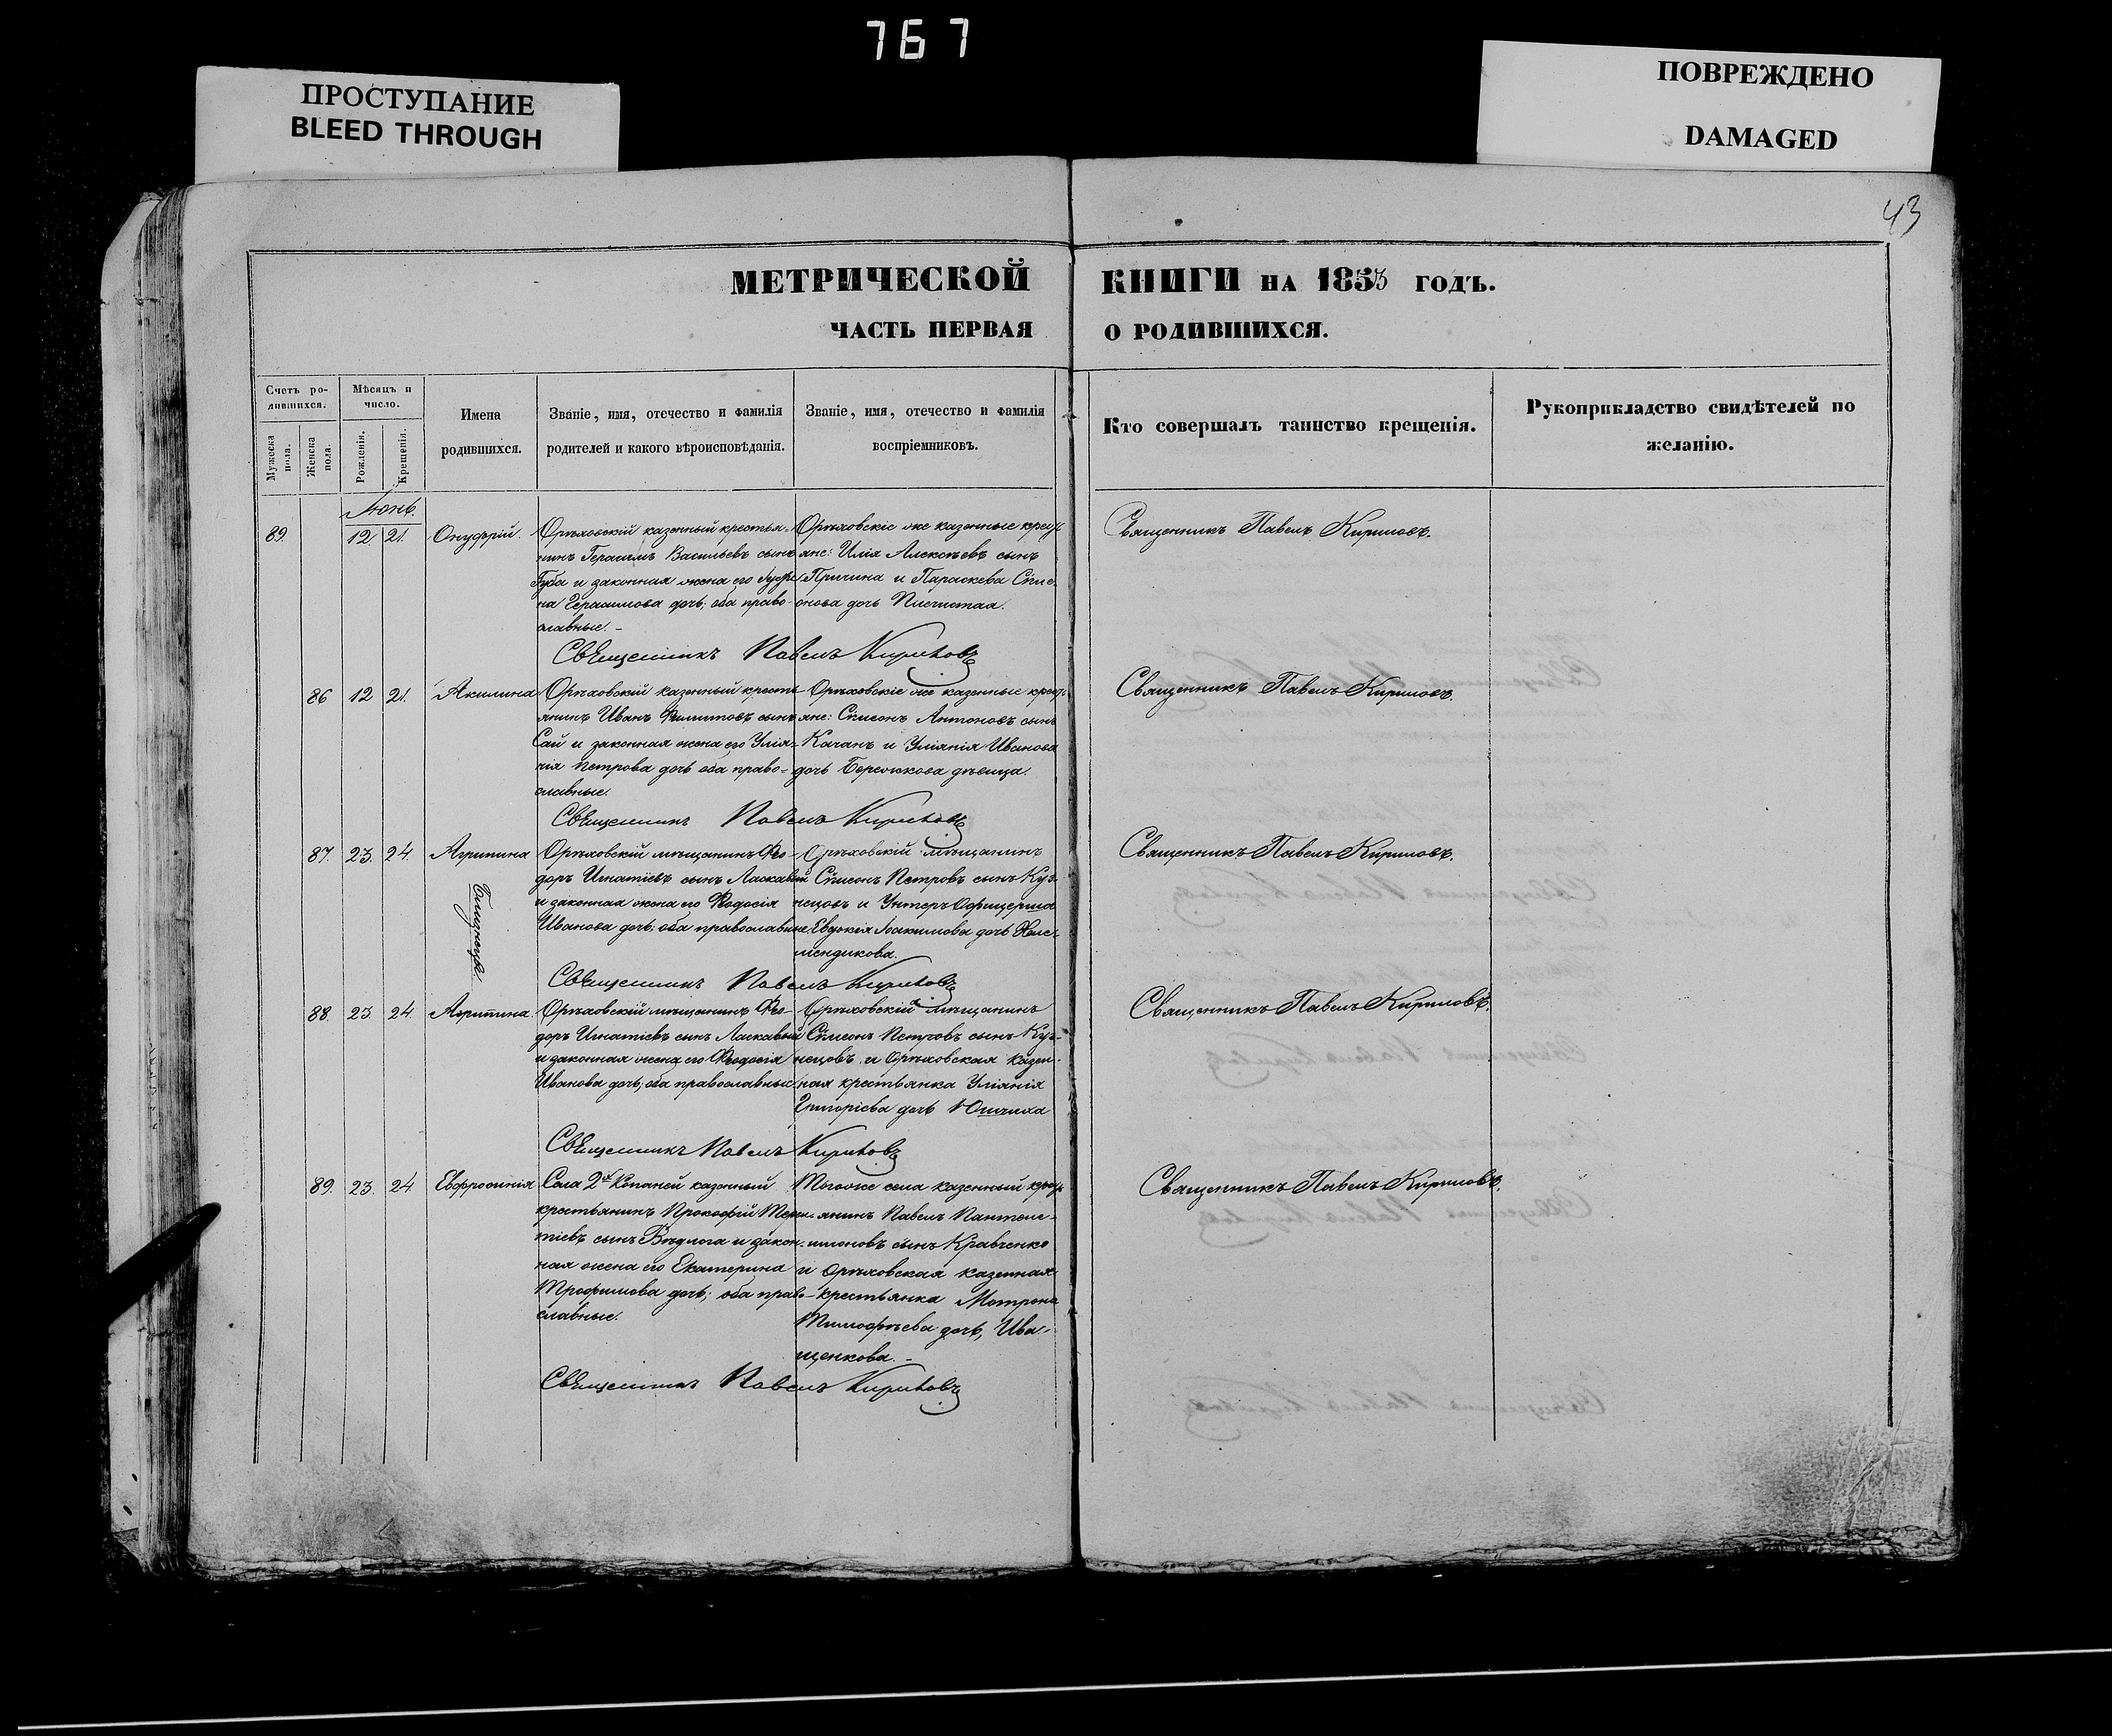 767
ПРОСТУПАНИЕ
BLEED THROUGH
ПОВРЕЖДЕНО
DAMAGED
43
МЕТРИЧЕСКОЙ КНИГИ НА 1853 ГОДЪ.
ЧАСТЬ ПЕРВАЯ О РОДИВШИХСЯ.
Счетъ ро-
дившихся.
Мужеска пола.
Женска пола.
Мѣсяцъ и
число.
Рожденія.
Крещенія.
Имена
родившихся.
Званіе, имя, отечество и фамилія
родителей и какого вѣроисповѣданія.
Званіе, имя, отечество и фамилія
воспріемниковъ.
Кто совершалъ таинство крещенія.
Рукоприкладство свидѣтелей по
желанію.
Іюнь.
89. 12 21. Онуфрій.
Орѣховскій казенный крестья-
нинъ Герасимъ Васильевъ сынъ
Губа и законная жена его
на Герасимова дочь; оба право-
славные.
Орѣховскіе же казенные крестья
яне: Илія Алексѣевъ сынъ
Причина и Параскева Сѵме-
онова дочь
Священникъ Павелъ Кириловъ.
Священникъ Павелъ Кириловъ
86 12 21. Акилина
Орѣховскій казенный кресть
янинъ Иванъ Филиповъ сынъ
Сай и законная жена его Улія-
нія Петрова дочь оба право-
славные.
Орѣховскіе же казенные кресть
яне: Сѵмеонъ Антоновъ сынъ
Качанъ и Уліянія Иванова
дочь дѣвица.
Священникъ Павелъ Кириловъ.
Священникъ Павелъ Кириловъ
87. 23. 24. Агрипина
Близнецы.
Орѣховскій мѣщанинъ Ѳео-
доръ Игнатіевъ сынъ Ласкавый
и законная жена его Ѳеодосія
Иванова дочь; оба православные
Орѣховскій мѣщанинъ
Сѵмеонъ Петровъ сынъ Куз-
нецовъ и Унтеръ Офицерша
Евдокія Іоакимова дочь
Священникъ Павелъ Кириловъ.
Священникъ Павелъ Кириловъ
88. 23 24. Агрипина.
Орѣховскій мѣщанинъ Ѳео-
доръ Игнатіевъ сынъ Ласкавый
и законная жена его Ѳеодосія
Иванова дочь; оба православные
Орѣховскій мѣщанинъ
Сѵмеонъ Петровъ сынъ Куз-
нецовъ и Орѣховская казен-
ная крестьянка Уліянія
Григоріева дочь
Священникъ Павелъ Кириловъ.
Священникъ Павелъ Кириловъ
89. 23. 24 Евфросинія
Села 2й Копаней казенный
крестьянинъ Прокофій Теren-
тіевъ сынъ Бѣдлога и закон-
ная жена его Екатерина
Трофимова дочь; оба право-
славные.
Тогоже села казенный кресть
янинъ Павелъ Пантеле-
имоновъ сынъ Кравченко
и Орѣховская казенная
крестьянка Мотрона
Тимофѣева дочь, Ива-
щенкова.
Священникъ Павелъ Кириловъ.
Священникъ Павелъ Кириловъ